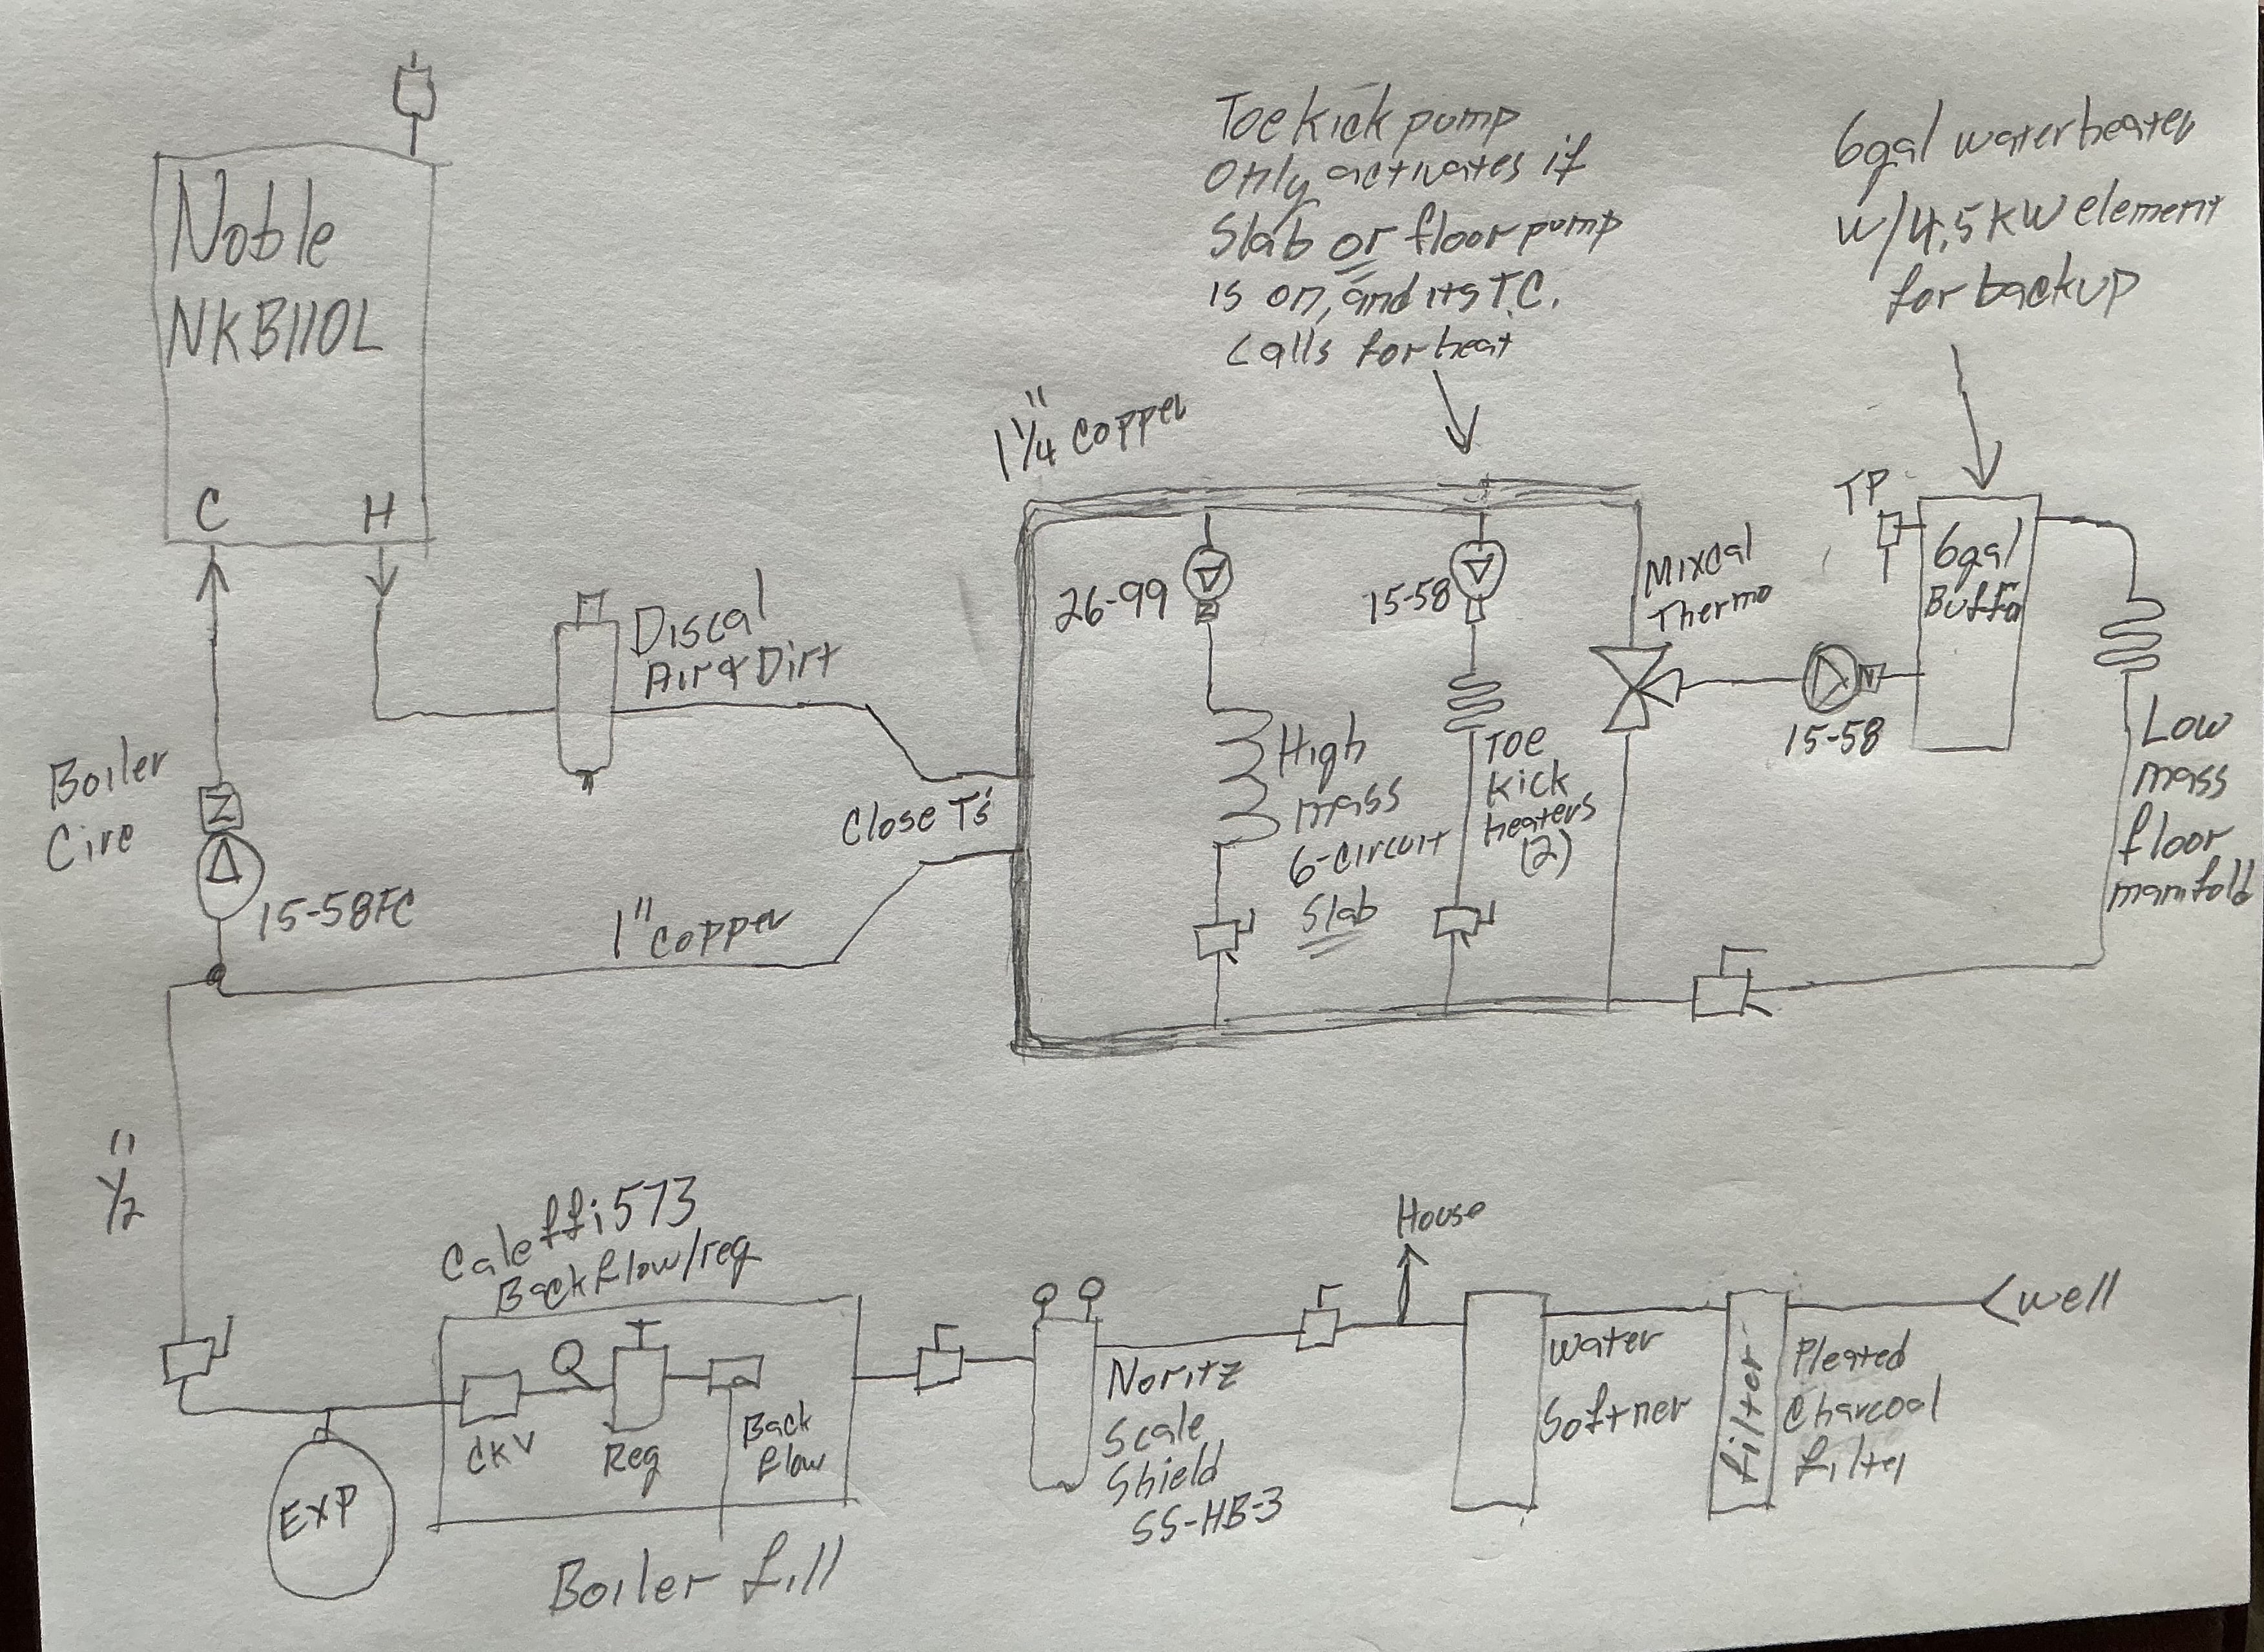 Noble
NKB110L
C
H
Boiler
Circ
15-58FC
Discal
Air & Dirt
Close T's
1" copper
1 1/4" copper
Toe kick pump
Only activates if
Slab or floor pump
is on, and its T.C.
calls for heat
26-99
High
mass
6-circuit
Slab
15-58
Toe
kick
heaters
(2)
Mixcal
Thermo
15-58
6gal water heater
w/4.5KW element
for backup
TP
6gal
Low
mass
floor
manifold
1/2"
EXP
Caleffi 573
Backflow/reg
CKV
Reg
Back
flow
Boiler fill
Noritz
Scale
Shield
SS-HB-3
House
Water
Softner
filter
Pleated
Charcoal
filter
Well